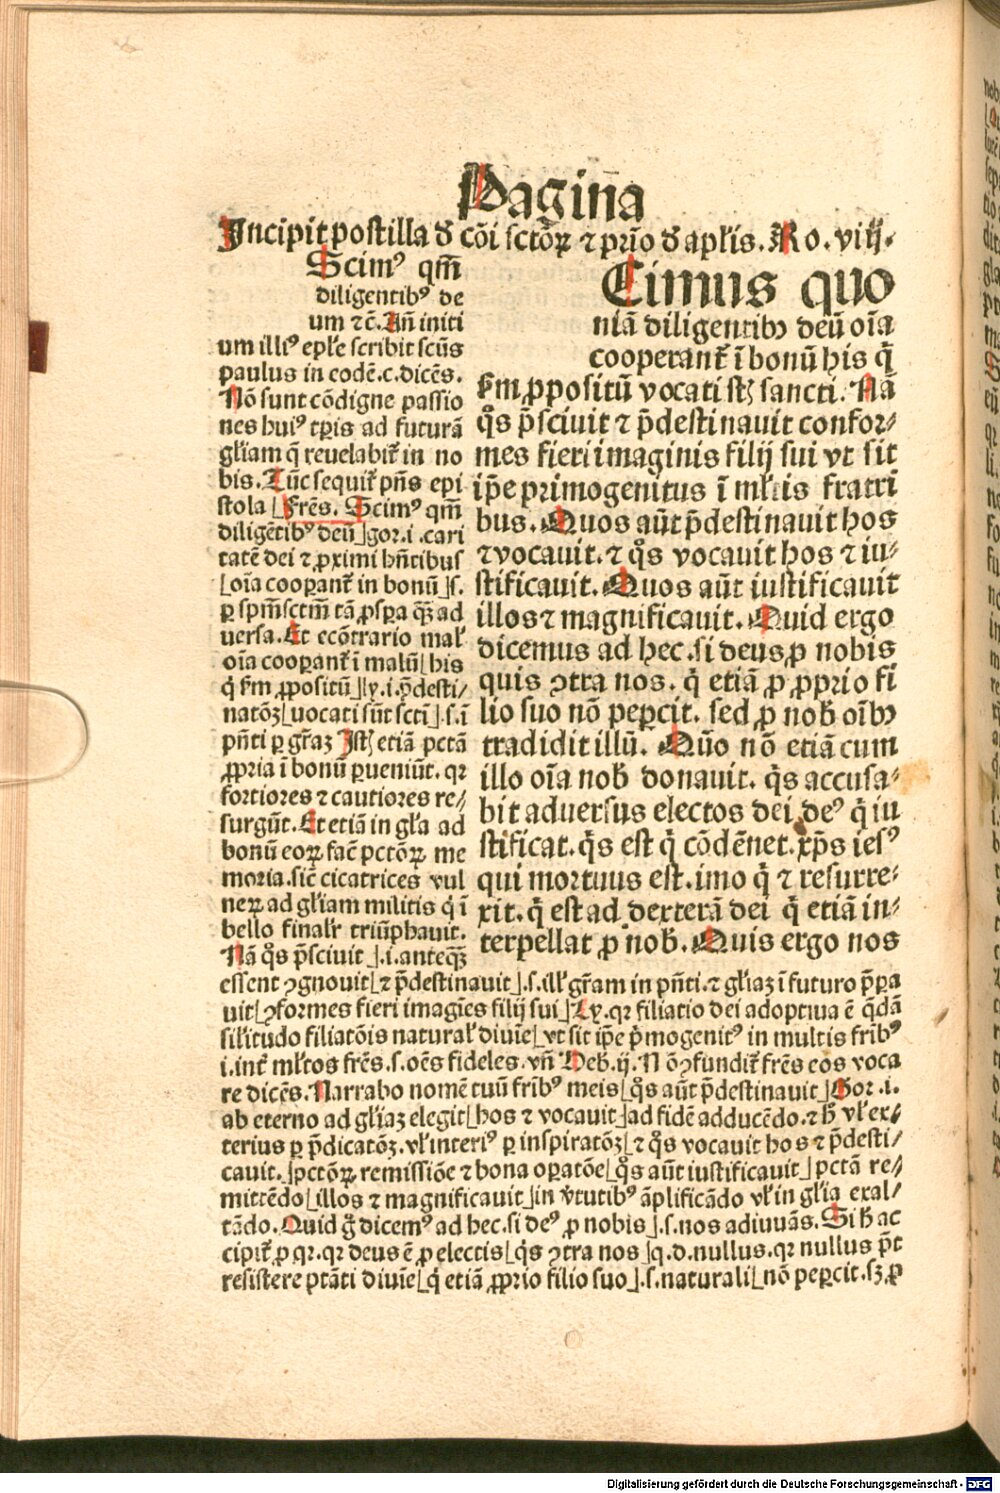 Pagina
Incipit postilla đ cōi sctōꝝ ⁊ prīo đ apl'is. Ro. viij.
Scimꝰ qm̄
diligentibꝰ de
um ⁊c̄. In̄ initi
um illiꝰ epl'e scribit scūs
paulus in codē.c.dicēs.
Nō sunt cōdigne passio
nes huiꝰ tꝑis ad futurā
gl'iam q̄ reuelabit᷑ in no
bis. Tūc sequit᷑ pn̄s epi
stola ⌊Frēs. Scimꝰ qm̄
diligētibꝰ deū⌋gor.i.cari
tatē dei ⁊ ꝓximi hn̄tibus
⌊oīa cooꝑant᷑ in bonū⌋.s.
ꝑ spm̄sctm̄ tā ꝓspa q̄ꝫ ad
uersa. Et ecōtrario mal'
oīa cooꝑant᷑ ī malū⌊his
q̇ ẜm ꝓpositū⌋ly.i.p̄desti⸗
natōꝫ⌊uocati sūt sctī⌋.s.ī
pn̄ti ꝑ gr̄aꝫ Istꝫ etiā pctā
ꝓpria ī bonū ꝑueniūt. qr
fortiores ⁊ cautiores re⸗
surgūt. Et etiā in gl'a ad
bonū eoꝝ facē pctōꝝ me
moria. sic̄ cicatrices vul
neꝝ ad gl'iam militis q̇ ī
bello finalr̄ triūphauit.
Nā q̊s p̄sciuit⌋.i.anteq̄ꝫ
Cimus quo
niā diligentibꝫ deū oīa
cooperant᷑ ī bonū his q̇
ẜm ꝓpositū vocati stꝫ sancti. Nā
q̊s p̄sciuit ⁊ p̄destinauit confor⸗
mes fieri imaginis filij sui vt sit
ip̄e primogenitus ī ml'tis fratri
bus. Quos aūt p̄destinauit hos
⁊ vocauit. ⁊ q̊s vocauit hos ⁊ iu⸗
stificauit. Quos aūt iustificauit
illos ⁊ magnificauit. Quid ergo
dicemus ad hec. si deus ꝓ nobis
quis ꝯtra nos. q̇ etiā ꝓ ꝓprio fi
lio suo nō peꝑcit. sed ꝓ nob̄ oībꝫ
tradidit illū. Quō nō etiā cum
illo oīa nob̄ donauit. q̇s accusa⸗
bit aduersus electos dei. deꝰ q̇ iu
stificat. q̇s est q̇ cōdēnet. xp̄s iesꝰ
qui mortuus est. imo q̇ ⁊ resurre⸗
xit. q̇ est ad dexterā dei q̇ etiā in⸗
terpellat ꝓ nob̄. Quis ergo nos
essent ꝯgnouit⌊⁊ p̄destinauit⌋.s.ill' gr̄am in pn̄ti. ⁊ gl'iaꝫ ī futuro p̄ꝑa
uit⌊ꝯformes fieri imagīes filij sui⌋Ly. qr filiatio dei adoptiua ē q̄dā
sil'itudo filiatōis natural' diuīe⌊vt sit ip̄e p̄mogenitꝰ in multis fr̄ibꝰ
i.int᷑ ml'tos frēs.s.oēs fideles. vn̄ Heb. ij. Nō ꝯfundit᷑ frēs eos voca
re dicēs. Narrabo nomē tuū fr̄ibꝰ meis⌊q̊s aūt p̄destinauit⌋Gor.i.
ab eterno ad gl'iaꝫ elegit⌊hos ⁊ vocauit⌋ad fidē adducēdo. ⁊ h̄ vl' ex⸗
terius ꝑ p̄dicatōꝫ. vl' interiꝰ ꝑ inspiratōꝫ⌊⁊ q̊s vocauit hos ⁊ p̄desti⸗
cauit.⌋pctōꝝ remissiōe ⁊ bona oꝑatōe⌊q̊s aūt iustificauit⌋pctā re⸗
mittēdo⌊illos ⁊ magnificauit⌋in v̄tutibꝰ āplificādo vl' in gl'ia exal⸗
tādo. Quid g̊ dicemꝰ ad hec. si deꝰ ꝓ nobis⌋.s.nos adiuuās. Si h̄ ac
cipit᷑ ꝓ qr. qr deus ē ꝓ electis⌊q̇s ꝯtra nos⌋q.d.nullus. qr nullus p̄t
resistere ptāti diuīe⌊q̇ etiā ꝓprio filio suo⌋.s.naturali⌊nō peꝑcit. sꝫ ꝓ
Digitalisierung gefördert durch die Deutsche Forschungsgemeinschaft - DFG